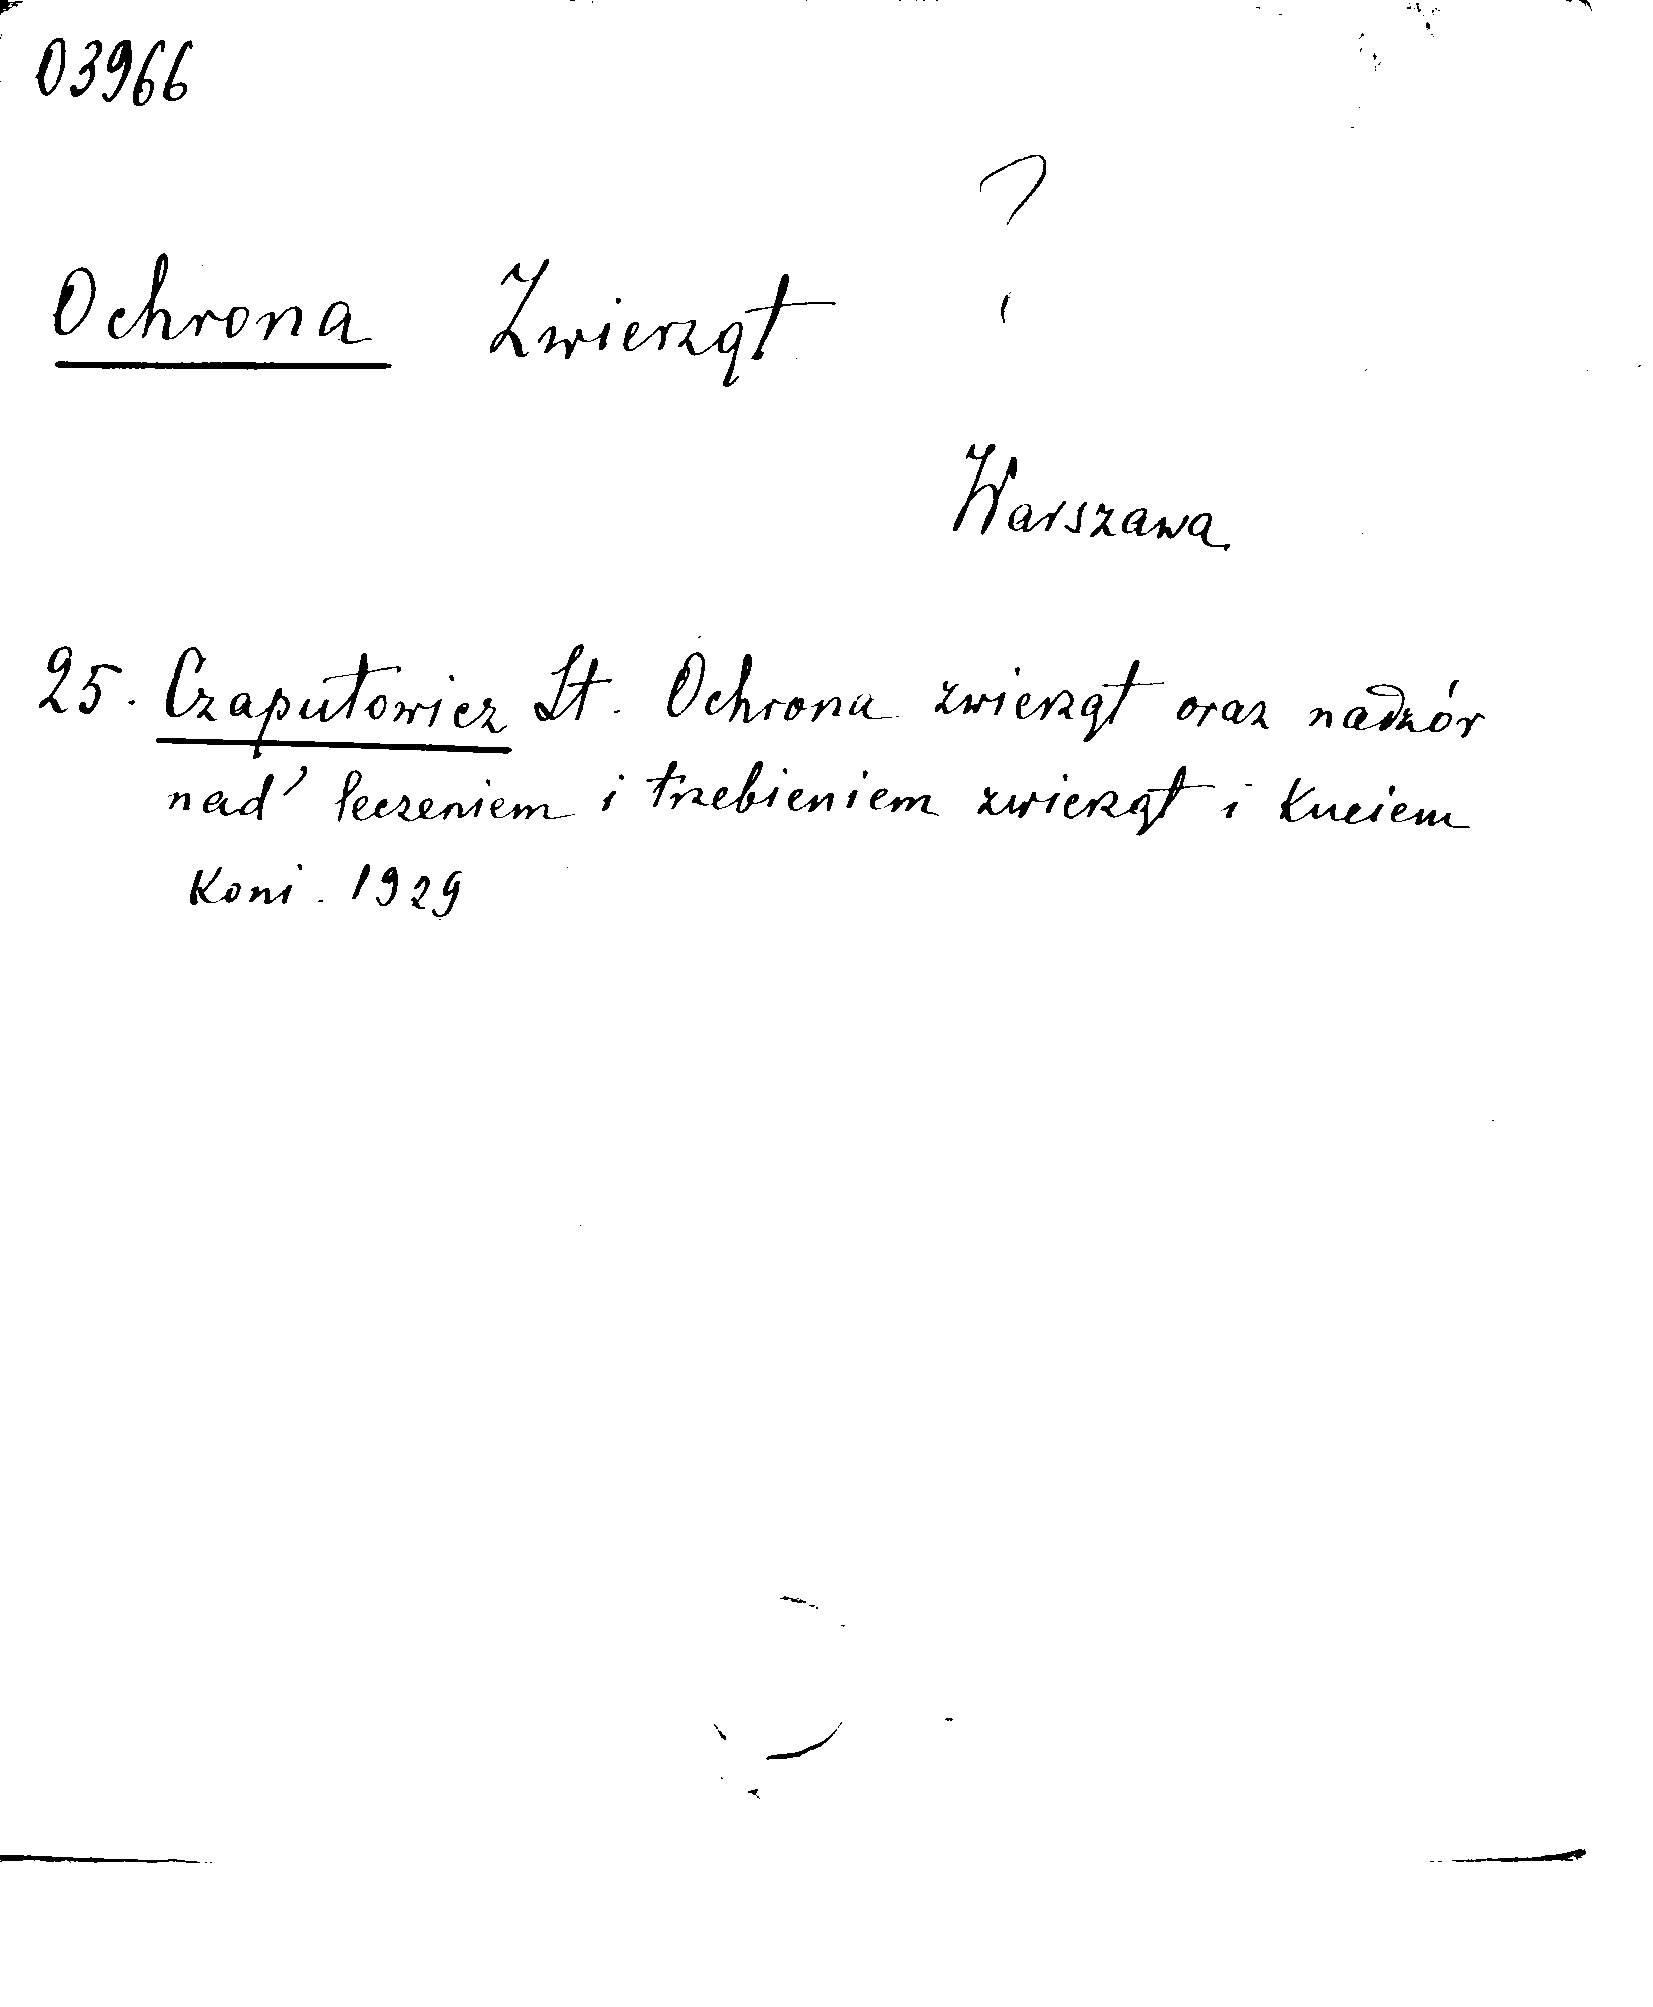 03966
?
Ochrona Zwierząt
Warszawa.
25. Czaputowicz St. Ochrona zwierząt oraz nadzór
nad leczeniem i trzebieniem zwierząt i Kuciem
Koni. 1929